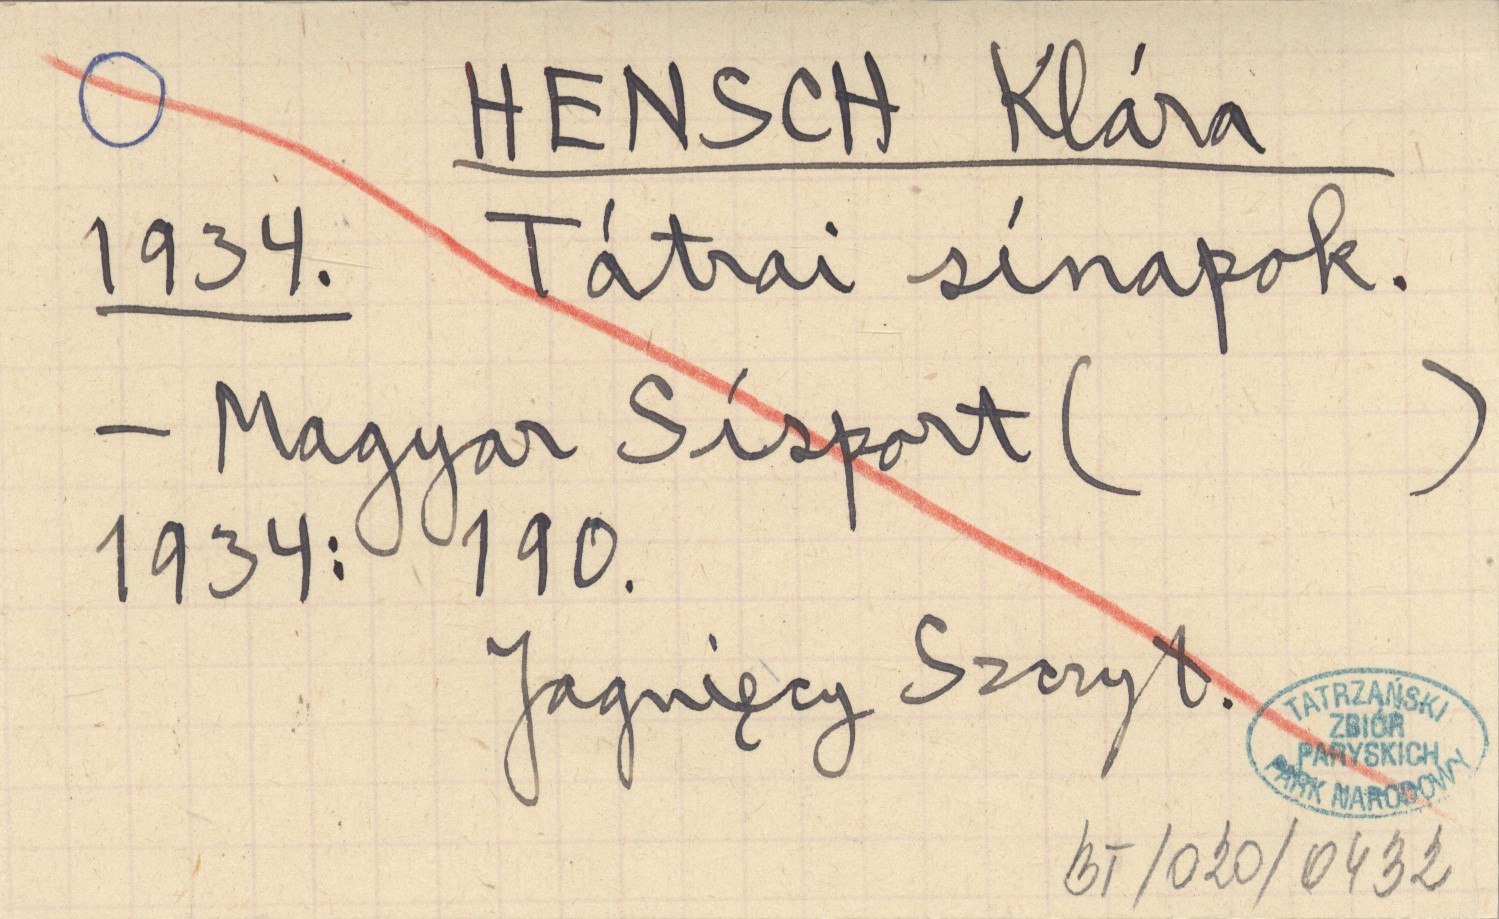 HENSCH Klára
1934. Tátrai sínapok.
– Magyar Sísport ( )
1934: 190.
Jagnięcy Szczyt.
TATRZAŃSKI
ZBIÓR
PARYSKICH
PARK NARODOWY
BT/020/0432